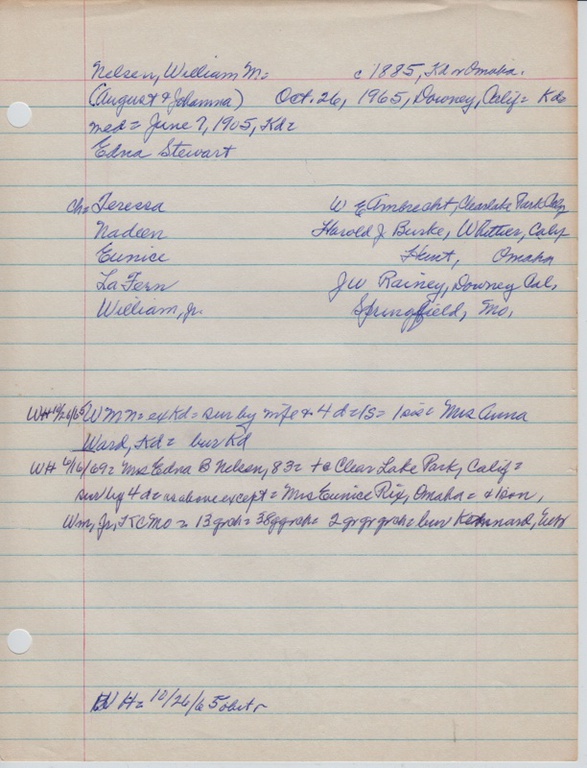 Nelsen, William M= c 1885, Kd or Omaha.
(August & Johanna) Oct. 26, 1965, Downey, Calif= Kd=
med= June 7, 1905, Kd=
Edna Stewart
ch= Teressa W E Ambrecht, Clearlake Park Calif
Nadeen Harold J Burke, Whittier, Calif
Eunice Hunt, Omaha
La Fern JW Rainey, Downey Cal,
William, jr. Springfield, Mo.
WH 10/26/65 W M N= ex Kd= sur by wife & 4 d= 1s= 1 sis= Mrs Anna
Ward, Kd= bur Kd
WH 4/6/69= Mrs Edna B Nelsen, 83= Clear Lake Park, Calif=
sur by 4 d= as above except= Mrs Eunice Rix, Omaha= & 1 son,
Wm, Jr, KC Mo= 13 grch= 38 ggrch= 2 grgrgrch= bur Kennard, Nebr
WH= 10/26/65 obit